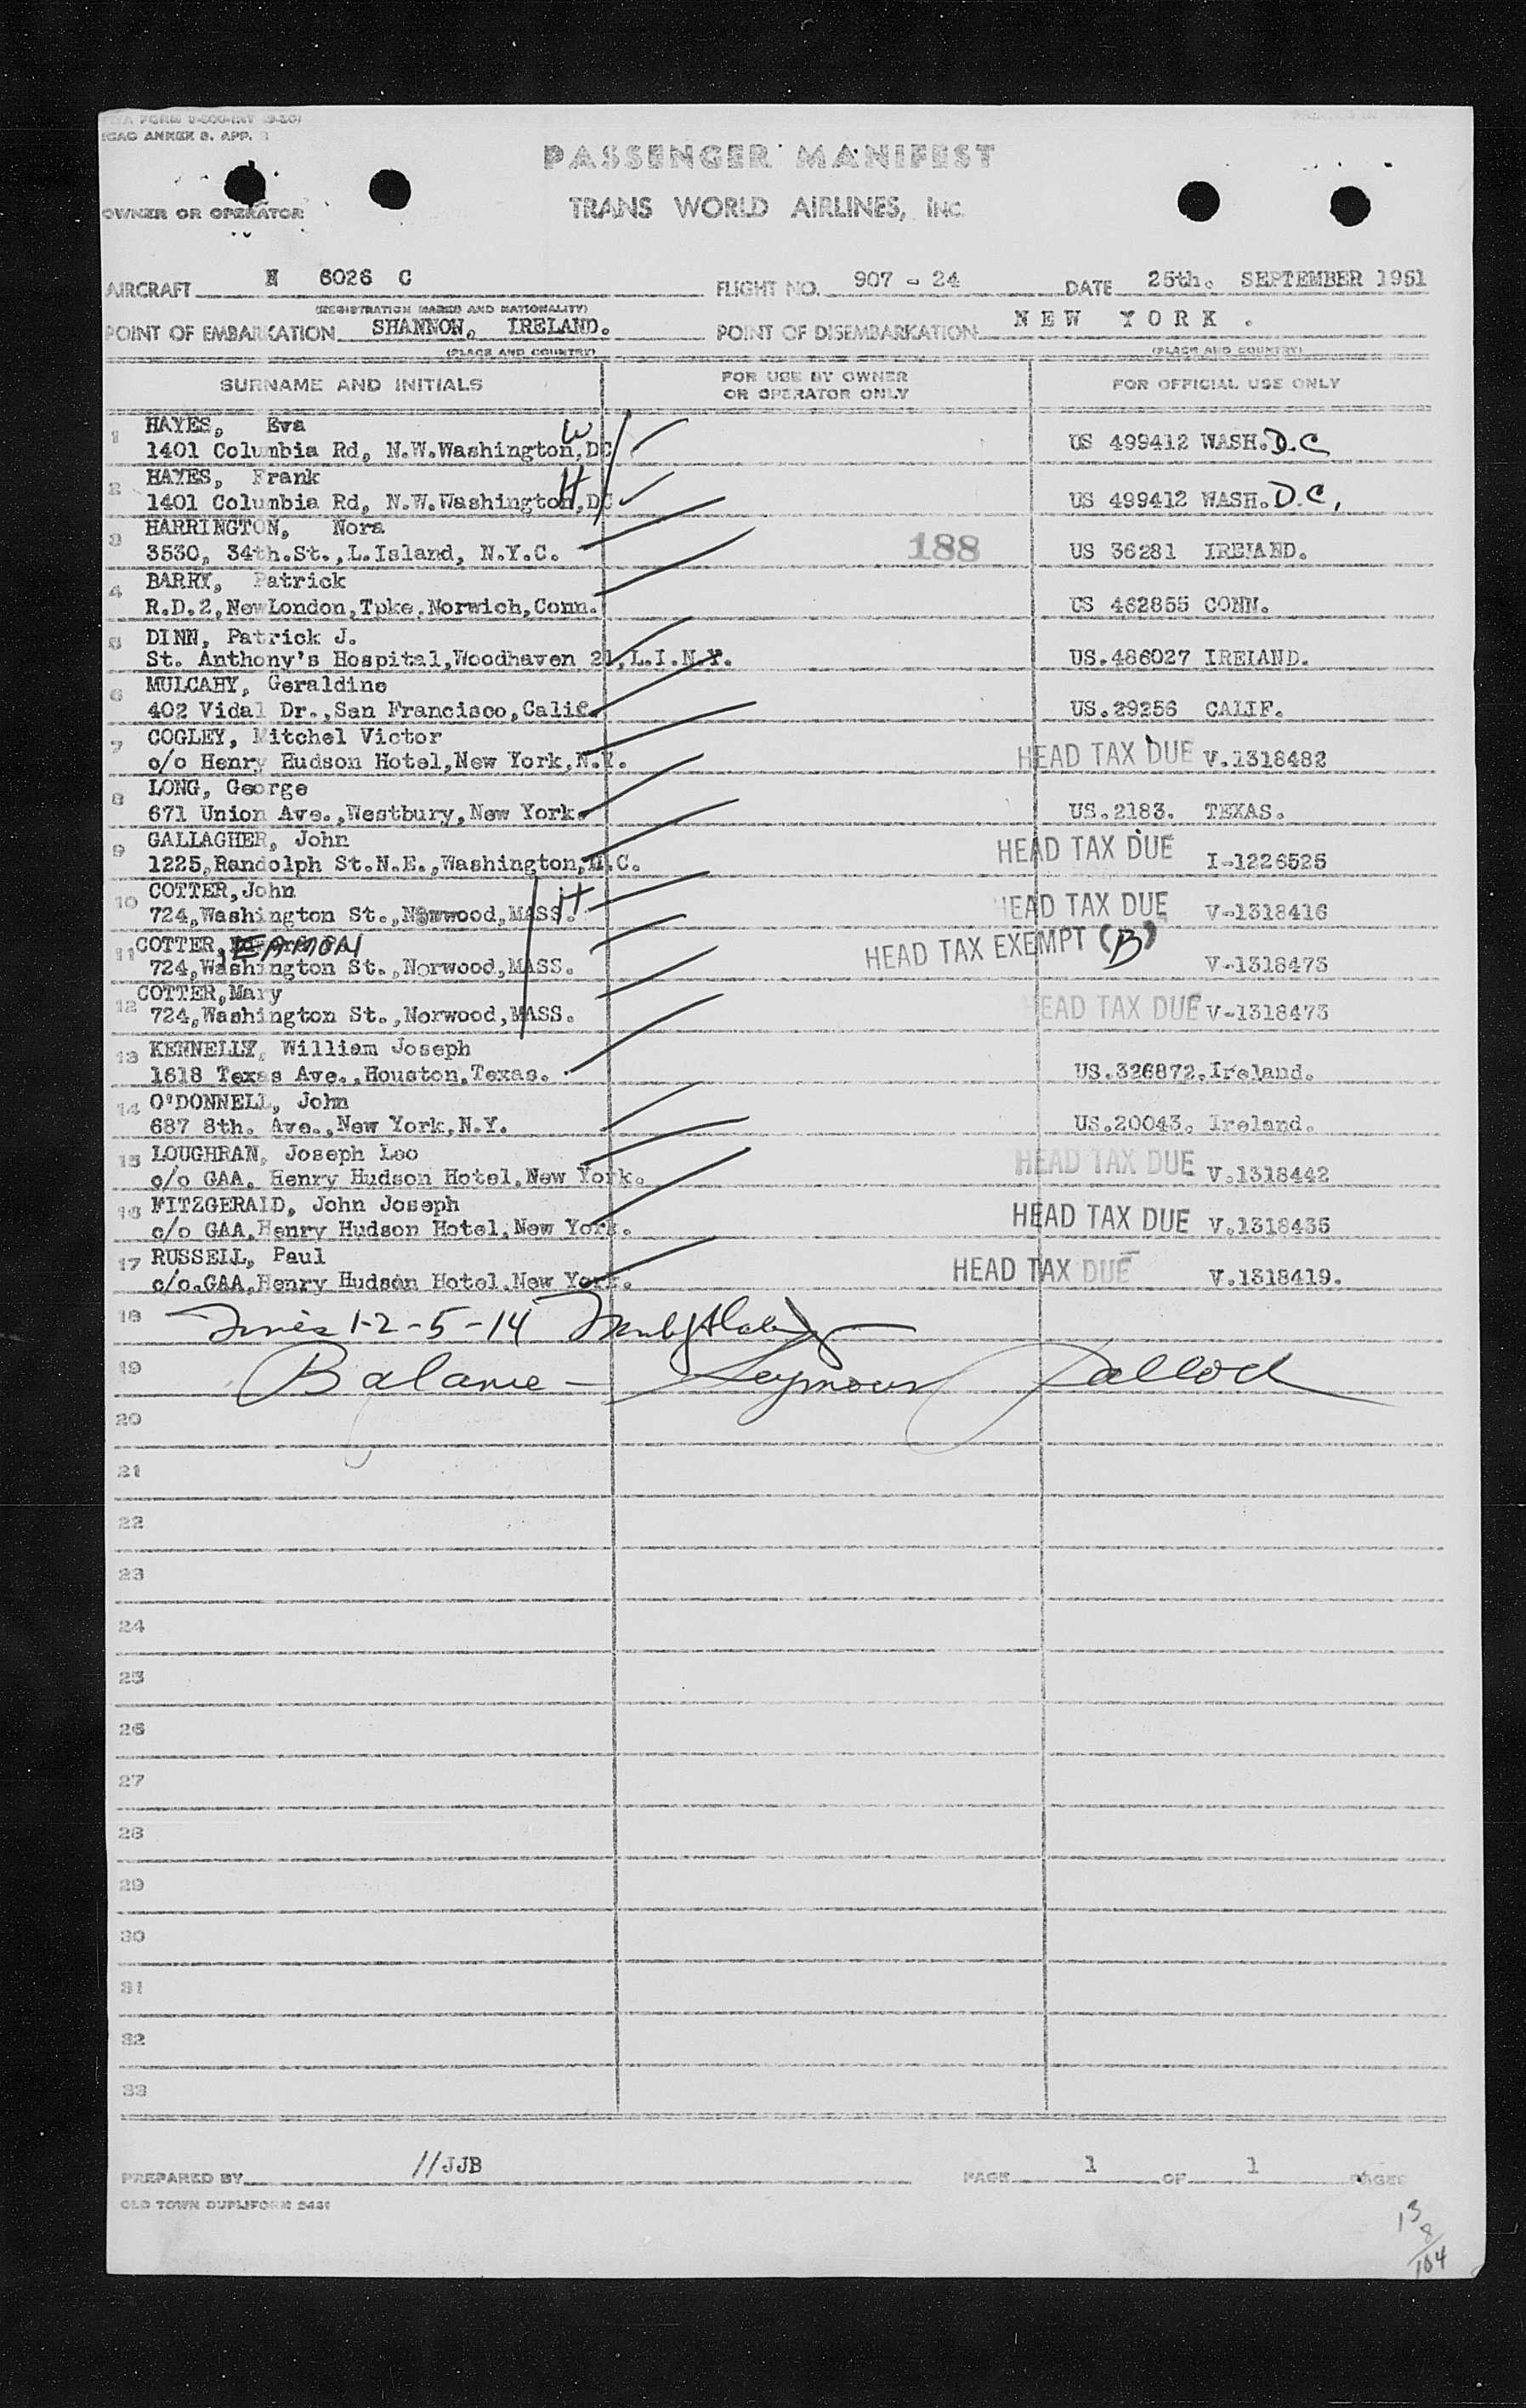 TWA FORM
ICAO ANNEX 9. APP.
PASSENGER MANIFEST
OWNER OR OPERATOR
TRANS WORLD AIRLINES, INC.
AIRCRAFT N 6026 C FLIGHT NO. 907 - 24 DATE 25th. SEPTEMBER 1951
(REGISTRATION MARKS AND NATIONALITY)
POINT OF EMBARKATION SHANNON, IRELAND. POINT OF DISEMBARKATION NEW YORK .
(PLACE AND COUNTRY) (PLACE AND COUNTRY)
SURNAME AND INITIALS FOR USE BY OWNER OR OPERATOR ONLY FOR OFFICIAL USE ONLY
1 HAYES, Eva
1401 Columbia Rd, N.W.Washington,DC W US 499412 WASH.D.C
2 HAYES, Frank
1401 Columbia Rd, N.W.Washington,DC H US 499412 WASH.D.C,
3 HARRINGTON, Nora
3530, 34th.St.,L.Island, N.Y.C. 188 US 36281 IRELAND.
4 BARRY, Patrick
R.D.2,NewLondon,Tpke.Norwich,Conn. US 462855 CONN.
5 DINN, Patrick J.
St. Anthony's Hospital,Woodhaven 21,L.I.N.Y. US.486027 IRELAND.
6 MULCAHY, Geraldine
402 Vidal Dr.,San Francisco,Calif. US.29256 CALIF.
7 COGLEY, Mitchel Victor
c/o Henry Hudson Hotel,New York,N.Y. HEAD TAX DUE V.1318482
8 LONG, George
671 Union Ave.,Westbury,New York. US.2183. TEXAS.
9 GALLAGHER, John
1225,Randolph St.N.E.,Washington,D.C. HEAD TAX DUE I-1226525
10 COTTER,John
724,Washington St.,Norwood,MASS. H HEAD TAX DUE V-1318416
11 COTTER, EAMON
724,Washington St.,Norwood,MASS. HEAD TAX EXEMPT (B) V-1318473
12 COTTER,Mary
724,Washington St.,Norwood,MASS. HEAD TAX DUE V-1318473
13 KENNELLY, William Joseph
1618 Texas Ave.,Houston,Texas. US.326872.Ireland.
14 O'DONNELL, John
687 8th. Ave.,New York,N.Y. US.20043. Ireland.
15 LOUGHRAN, Joseph Leo
c/o GAA, Henry Hudson Hotel,New York. HEAD TAX DUE V.1318442
16 FITZGERALD, John Joseph
c/o GAA,Henry Hudson Hotel,New York. HEAD TAX DUE V.1318435
17 RUSSELL, Paul
c/o.GAA,Henry Hudson Hotel,New York. HEAD TAX DUE V.1318419.
18 Lines 1-2-5-14
19 Balance - Seymour
20
21
22
23
24
25
26
27
28
29
30
31
32
33
PREPARED BY //JJB PAGE 1 OF 1 PAGES
OLD TOWN DUPLIFORM 2461
13
8
104